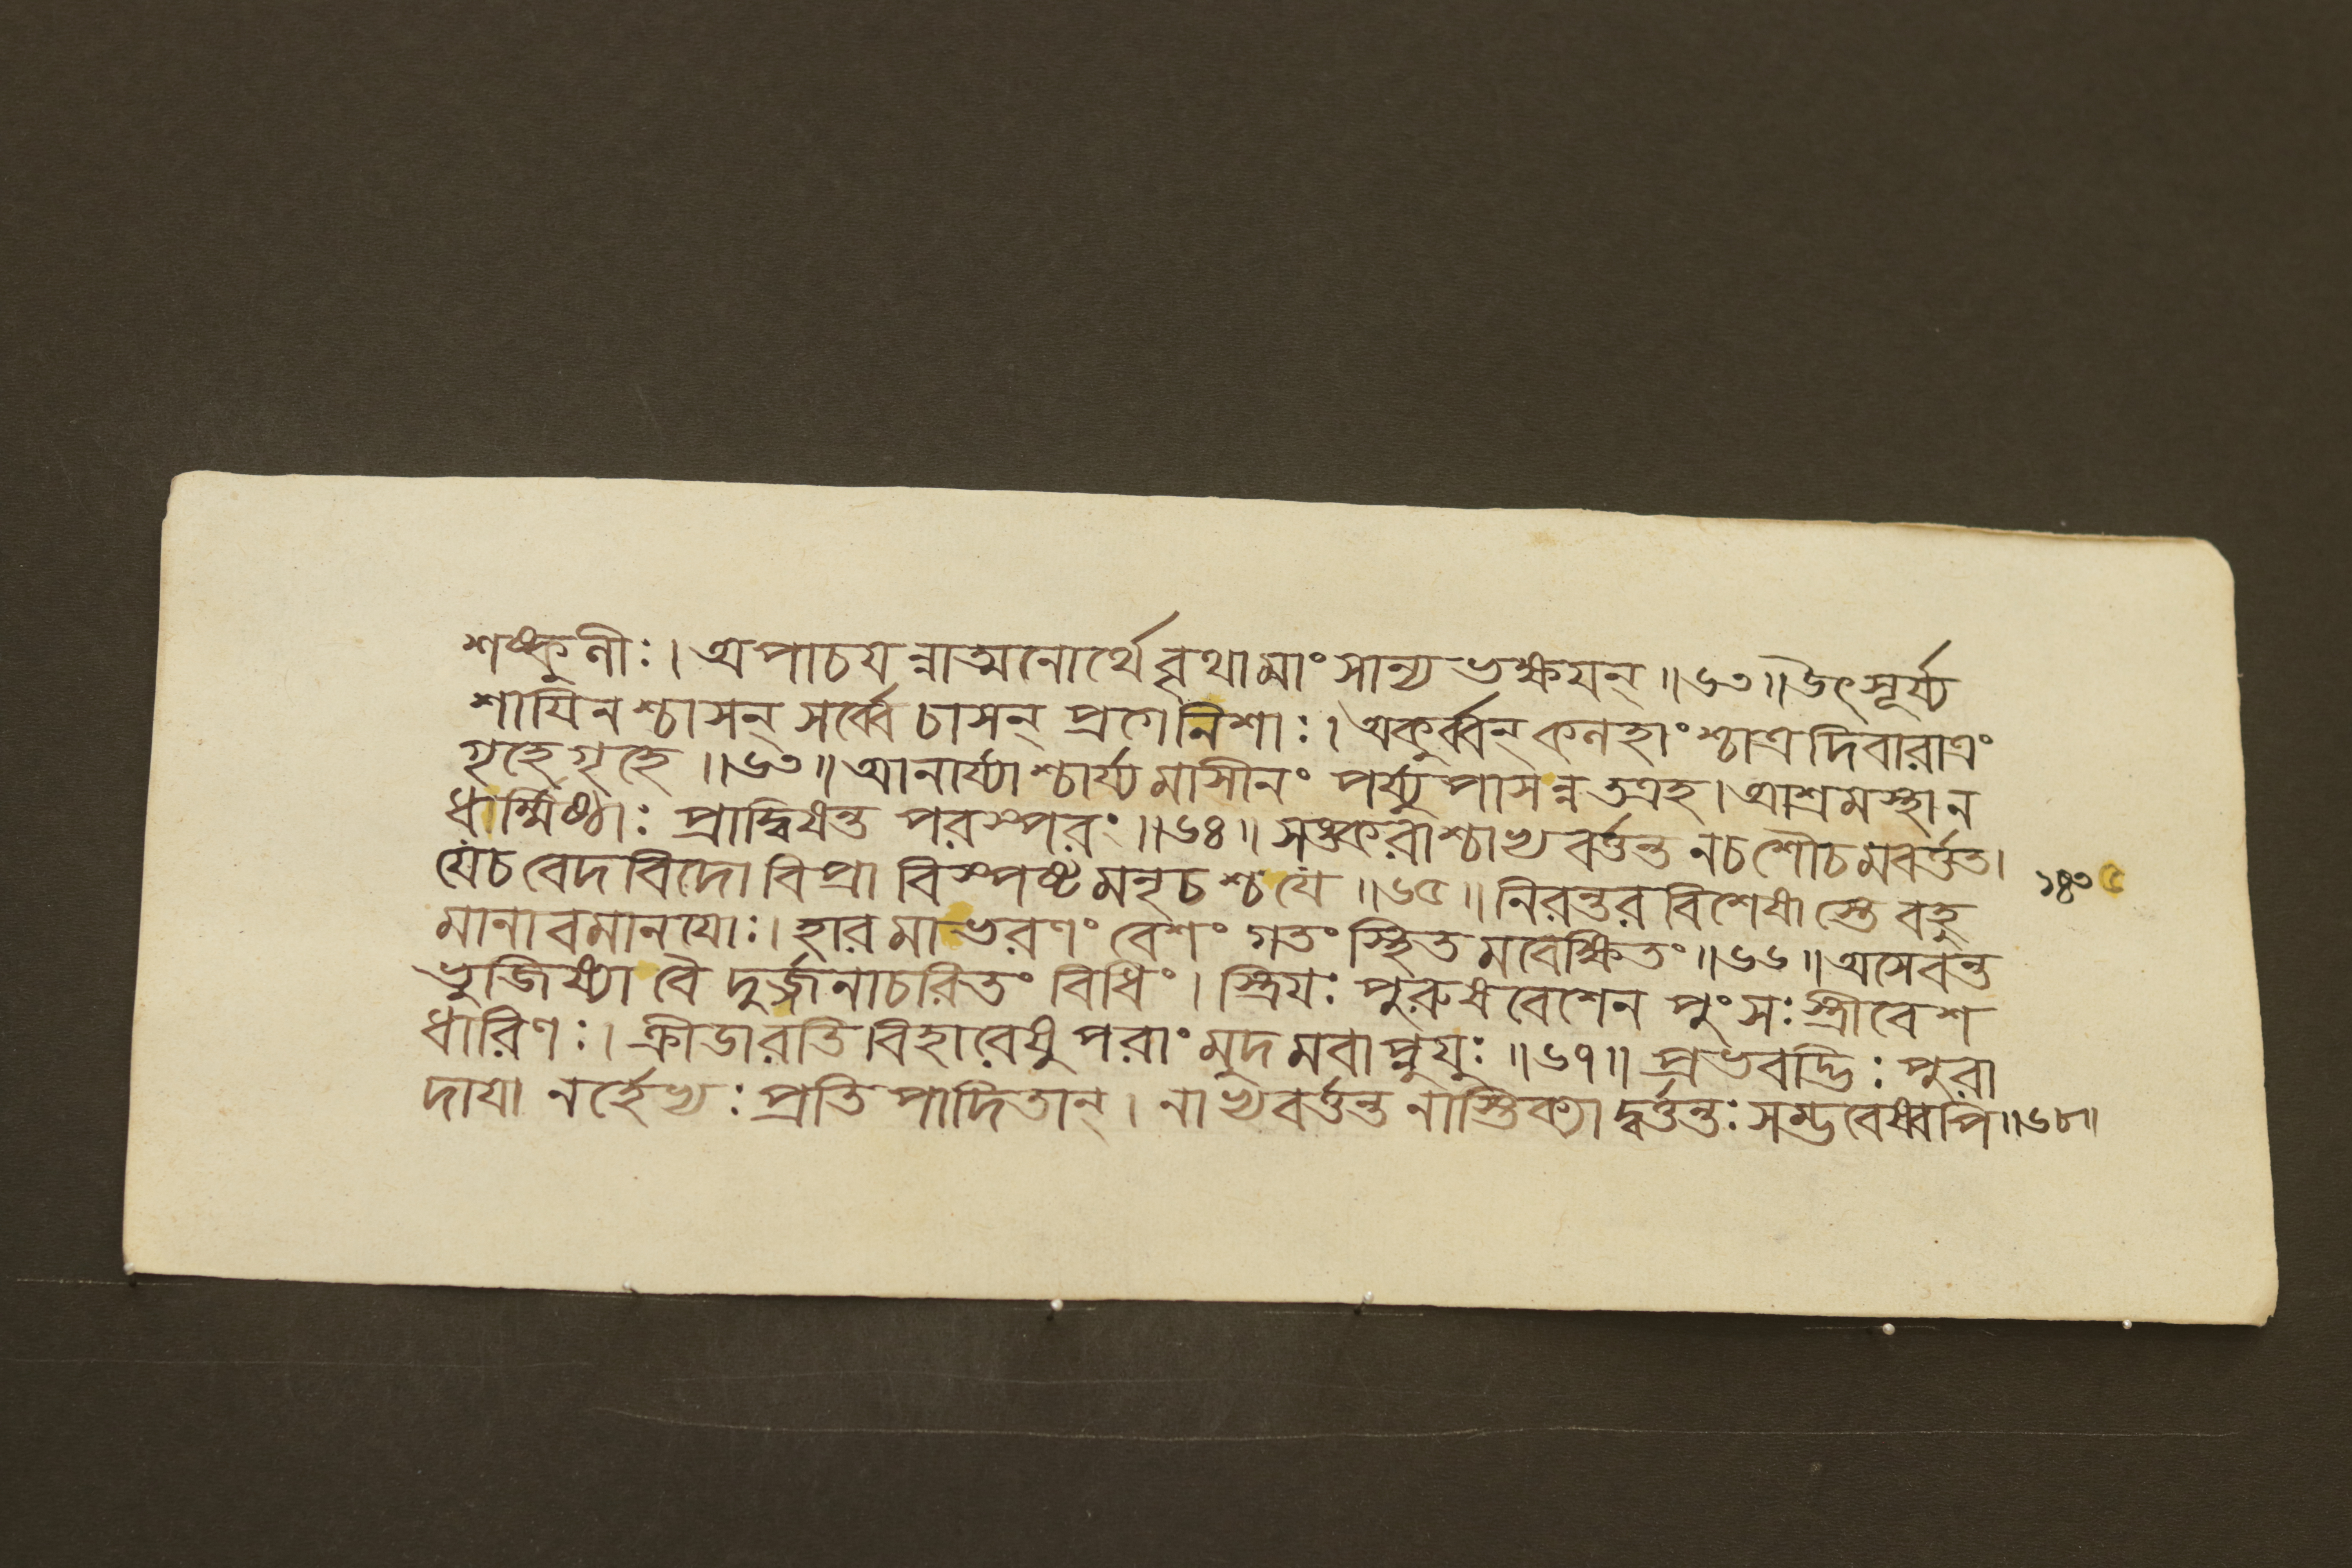 শষ্কুনীঃ। অপাচযন্নাত্মনোর্থে বৃথামাংসান্য ভক্ষযন্॥৬৩॥উৎসূর্য্য
শাযিনশ্চাসন্ সর্ব্বে চাসন্ প্রগেনিশাঃ। অকুর্ব্বন্ কনহাংশ্চাত্র দিবারাত্রং
গৃহেগৃহে॥৬৩॥ আনার্য্যাশ্চার্য্যমাসীনং পর্য্যুপাসন্নতত্রহ। আশ্রমস্থান
ধার্ম্মিষ্ঠাঃ প্রাদ্বিষন্ত পরস্পরং॥৬৪॥ সঙ্করাশ্চাভ্যবর্ত্তন্ত নচশৌচমবর্ত্তত।
যেচ বেদবিদো বিপ্রা বিস্পষ্টমনৃচশ্চযে॥৬৫॥ নিরন্তরবিশেষাস্তে বহু
মানাবমানযোঃ। হারমাভরণং বেশং গতং স্থিতমবেক্ষিতং॥৬৬॥ অসেবন্ত
ভুজিষ্যা বৈ দুর্জ্জনাচরিতং বিধিং। স্ত্রিযঃ পুরুষবেশেন পুংসঃ স্ত্রীবেশ
ধারিণঃ। ক্রীডারতিবিহারেষু পরাং মুদমবাপ্নুযুঃ॥৬৭॥ প্রভবদ্ভিঃ পুরা
দাযা নর্হেভ্যঃ প্রতিপাদিতান্। নাভ্যবর্ত্তন্ত নাস্তিক্যাদ্বর্ত্তন্তঃ সম্ভবেষ্বপি॥৬৮॥
১৪৩